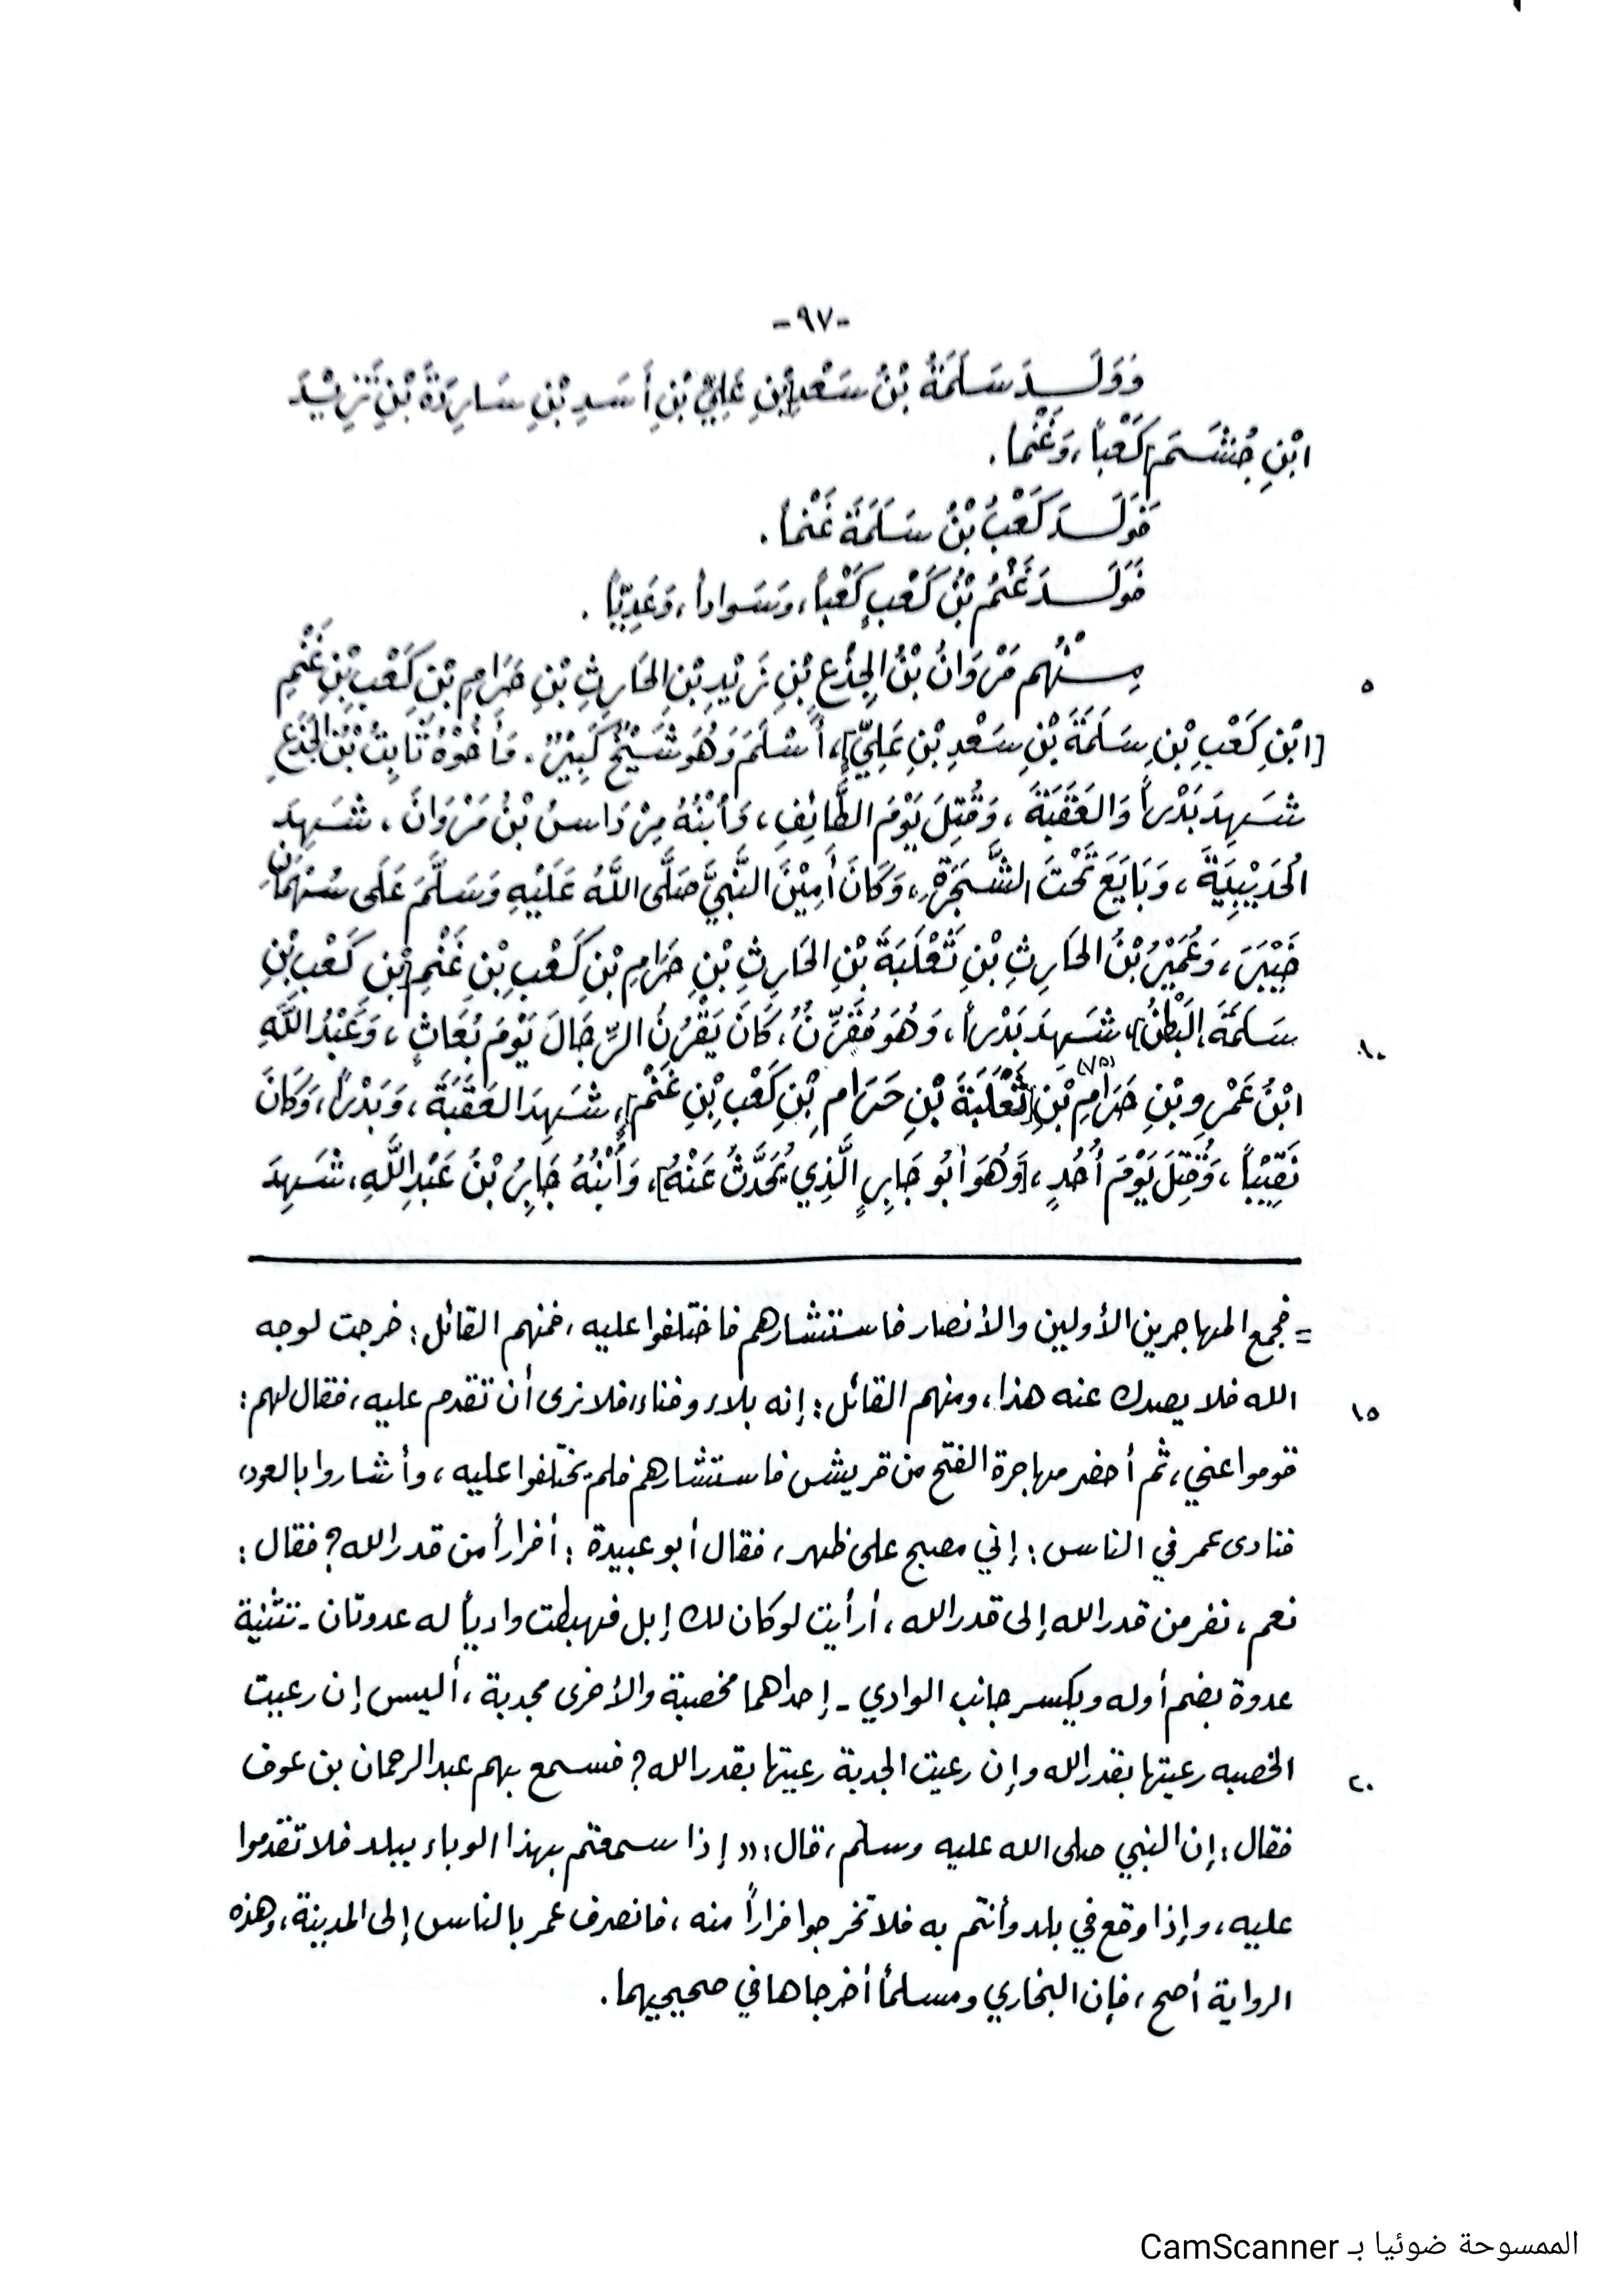 -٩٧-
وَوَلَدَ سَلَمَةُ بْنُ سَعْدِ [بْنِ عَلِيِّ بْنِ أَسَدِ بْنِ سَارِدَةَ بْنِ تَزِيْدَ
ابْنِ جُشَمَ] كَعْباً، وَغَنْماً.
فَوَلَدَ كَعْبُ بْنُ سَلَمَةَ غَنْماً.
فَوَلَدَ غَنْمُ بْنُ كَعْبٍ كَعْباً، وَسَوَاداً، وَعَدِيّاً.
٥ مِنْهُم مَرْوَانُ بْنُ الجِذْعِ بْنِ زَيْدِ بْنِ الحَارِثِ بْنِ حَرَامِ بْنِ كَعْبِ بْنِ غَنْمِ
[ابْنِ كَعْبِ بْنِ سَلَمَةَ بْنِ سَعْدِ بْنِ عَلِيٍّ]، أَسْلَمَ وَهُوَ شَيْخٌ كَبِيْرٌ. وَأَخُوْهُ ثَابِتُ بْنُ الجِذْعِ
شَهِدَ بَدْراً وَالعَقَبَةَ، وَقُتِلَ يَوْمَ الطَّائِفِ، وَابْنُهُ مِرْدَاسُ بْنُ مَرْوَانَ، شَهِدَ
الحُدَيْبِيَةَ، وَبَايَعَ تَحْتَ الشَّجَرَةِ، وَكَانَ أَمِيْنَ النَّبِيِّ صَلَّى اللَّهُ عَلَيْهِ وَسَلَّمَ عَلَى سُهْمَانِ
خَيْبَرَ، وَعُمَيْرُ بْنُ الحَارِثِ بْنِ ثَعْلَبَةَ بْنِ الحَارِثِ بْنِ حَرَامِ بْنِ كَعْبِ بْنِ غَنْمِ [بْنِ كَعْبِ بْنِ
١٠ سَلَمَةَ البَطْنُ]، شَهِدَ بَدْراً، وَهُوَ مُقَرِّنٌ، كَانَ يَقْرُنُ الرِّجَالَ يَوْمَ بُعَاثٍ، وَعَبْدُ اللَّهِ
ابْنُ عَمْرِو بْنِ حَرَامِ (٧٥) بْنِ [ثَعْلَبَةَ بْنِ حَرَامِ بْنِ كَعْبِ بْنِ غَنْمٍ]، شَهِدَ العَقَبَةَ، وَبَدْراً، وَكَانَ
نَقِيْباً، وَقُتِلَ يَوْمَ أُحُدٍ، [وَهُوَ أَبُو جَابِرٍ الَّذِي يُحَدَّثُ عَنْهُ]، وَابْنُهُ جَابِرُ بْنُ عَبْدِ اللَّهِ، شَهِدَ
= فجمع المهاجرين الأولين والأنصار فاستشارهم فاختلفوا عليه، فمنهم القائل: خرجت لوجه
١٥ الله فلا يصدك عنه هذا، ومنهم القائل: إنه بلاء وفناء فلا نرى أن تقدم عليه، فقال لهم:
قوموا عني، ثم أحضر مهاجرة الفتح من قريش فاستشارهم فلم يختلفوا عليه، وأشاروا بالعود،
فنادى عمر في الناس: إني مصبح على ظهر، فقال أبو عبيدة: أفراراً من قدر الله؟ فقال:
نعم، نفر من قدر الله إلى قدر الله، أرأيت لو كان لك إبل فهبطت وادياً له عدوتان - تثنية
عدوة بضم أوله وبكسر جانب الوادي - إحداهما مخصبة والأخرى مجدبة، أليس إن رعيت
٢٠ الخصبه رعيتها بقدر الله وإن رعيت الجدبة رعيتها بقدر الله؟ فسمع بهم عبد الرحمان بن عوف
فقال: إن النبي صلى الله عليه وسلم، قال: «إذا سمعتم بهذا الوباء ببلد فلا تقدموا
عليه، وإذا وقع في بلد وأنتم به فلا تخرجوا فراراً منه، فانصرف عمر بالناس إلى المدينة، وهذه
الرواية أصح، فإن البخاري ومسلماً أخرجاها في صحيحيهما.
الممسوحة ضوئيا بـ CamScanner